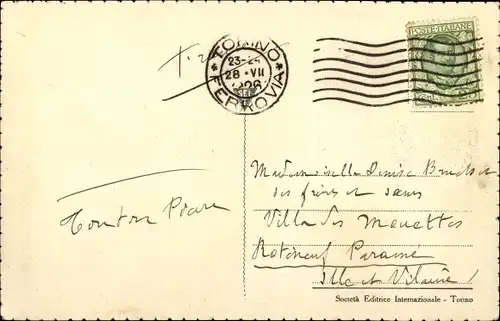 TORINO
23-24
28 · VII
1926
FERROVIA
POSTE ITALIANE
Mademoiselle Denise
ses frères et sœurs
Villa des Mouettes
Tonton Pierre
Roténeuf Paramé
Ille et Vilaine
Società Editrice Internazionale - Torino